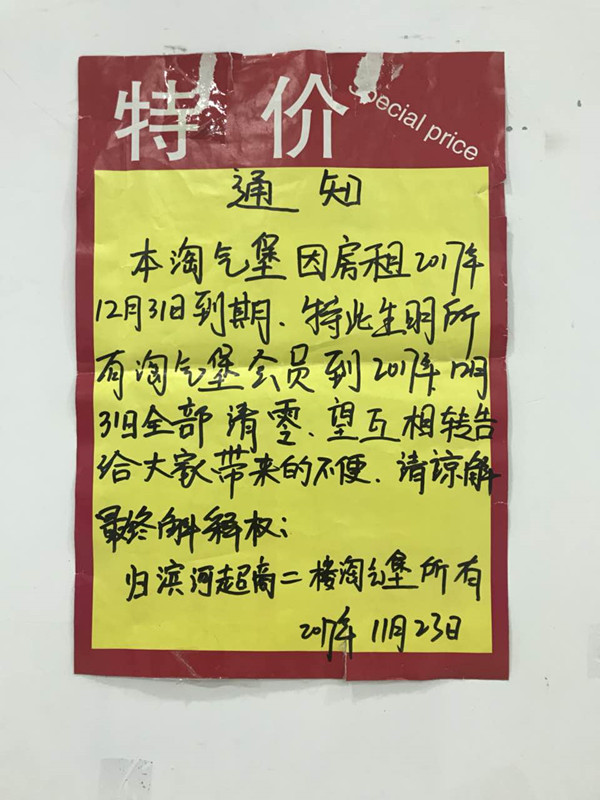 特价
Special price
通知
本淘气堡因房租2017年
12月31日到期、特此生明所
有淘气堡会员到2017年12月
31日全部请零、望互相转告
给大家带来的不便、请谅解
最终解释权:
归滨河超商二楼淘气堡所有
2017年11月23日